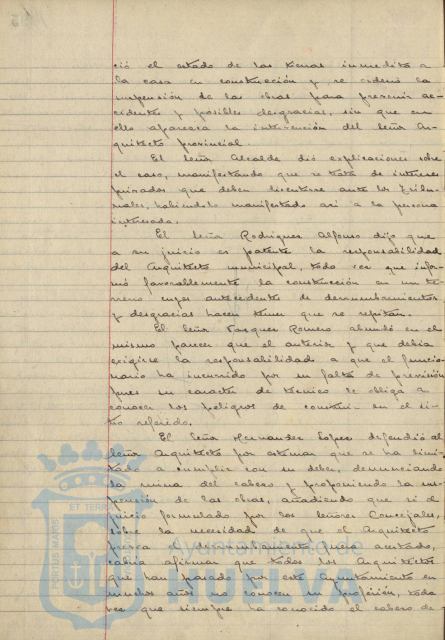 ció el estado de las tierras inmedita a
la casa en construcción y se ordenó la
suspensión de las obras para prevenir ac-
cidentes y posibles desgracias, sin que en
ello aparezca la intervención del Señor Ar-
quitecto provincial.
El Señor Alcalde dió explicaciones sobre
el caso, manifestando que se trata de intereses
privados que deben discutirse ante los Tribu-
nales, habiéndolo manifestado así a la persona
interesada.
El Señor Rodriguez Alfonso dijo que
a su juicio es patente la responsabilidad
del Arquitecto municipal, toda vez que infor-
mó favorablemente la construcción en un te-
rreno cuyos antecedentes de derrumbamientos
y desgracias hacen temer que se repitan.
El Señor Vazquez Romero abundó en el
mismo parecer que el anterior y que debia
exigirse la responsabilidad a que el funcio-
nario ha incurrido por su falta de previsión
pues su caracter de técnico le obliga a
conocer los peligros de construir en el si-
tio referido.
El Señor Hernandez Lopez defendió al
Señor Arquitecto por estimar que se ha limi-
tado a cumplir con su deber, denunciando
la ruina del cabezo y proponiendo la sus-
pensión de las obras, añadiendo que si el
juicio formulado por los Señores Concejales,
sobre la necesidad de que el Arquitecto
el derrumbamiento fuera acertado,
cabria afirmar que todos los Arquitectos
que han pasado por este Ayuntamiento en
muchos años no conocen su profesión, toda
vez que siempre ha conocido el cabezo de
PORTUS MARIS ET TERRAE
Ayuntamiento de
HUELVA